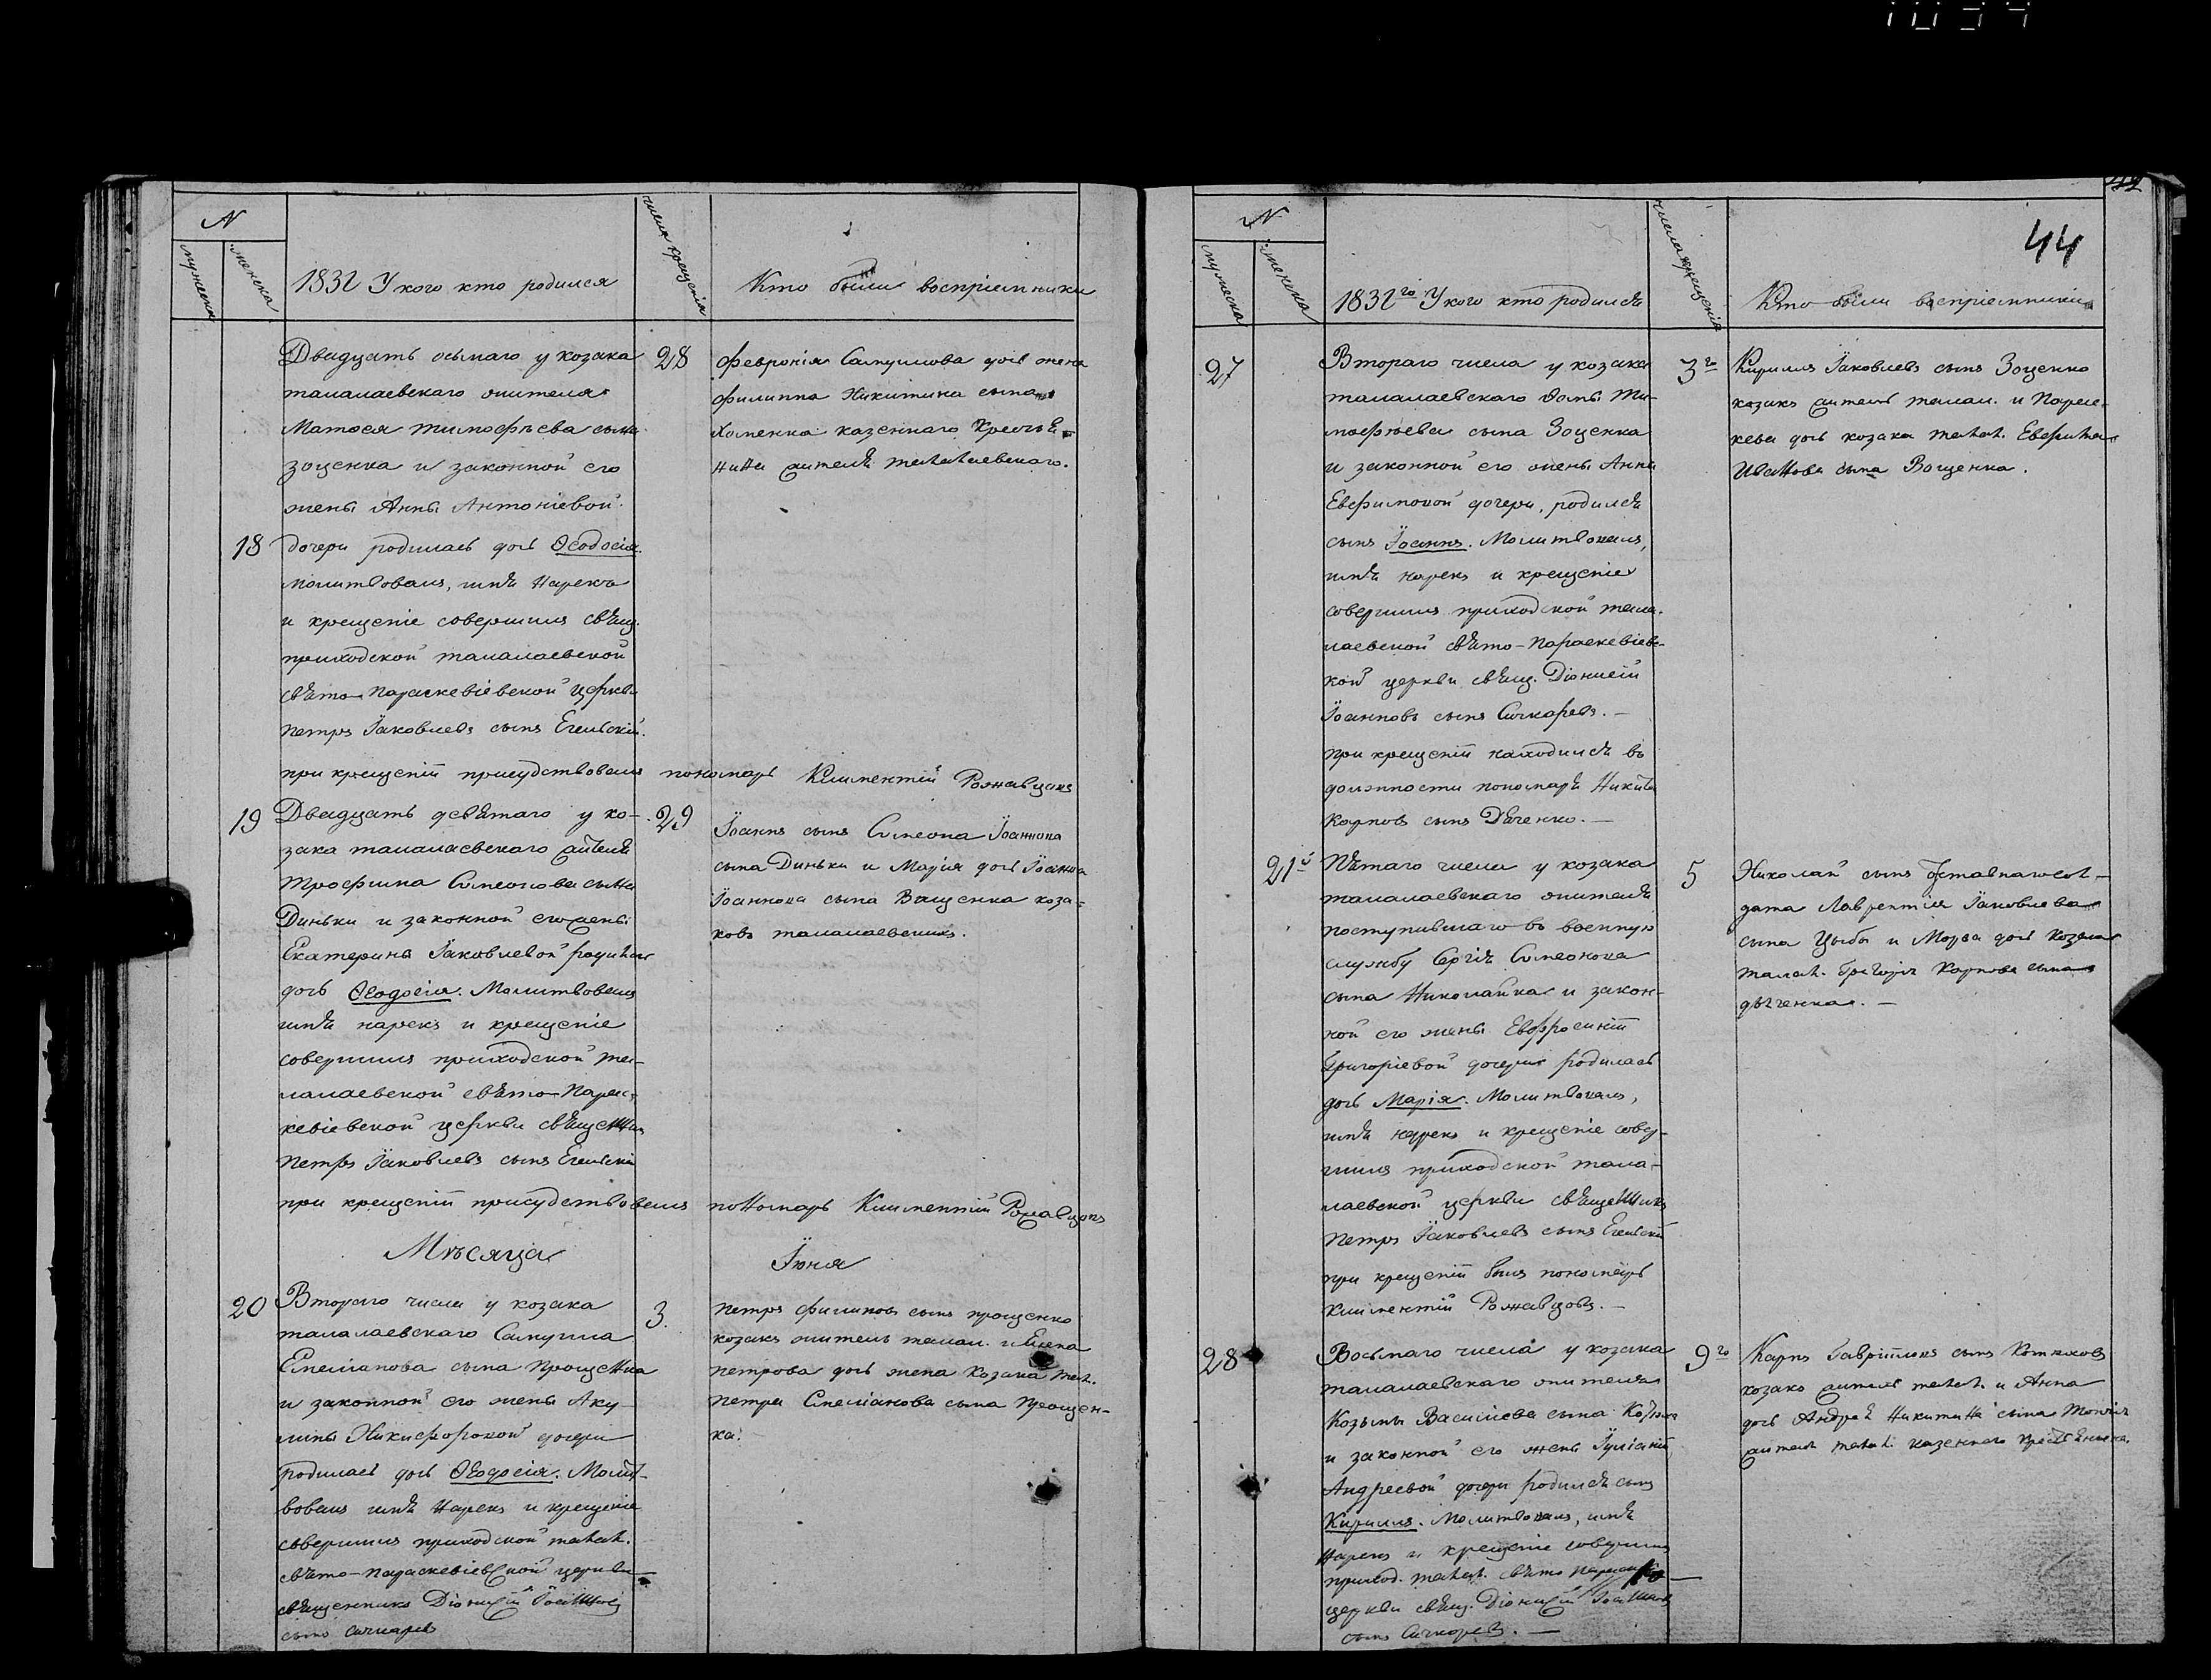 N
мужеска
женска
1832 У кого кто родился
числа крещенія
Кто были воспріемники
Двадцать осьмаго у козака
талалаевскаго жителя
Матѳея Тимофѣева сына
Зоценка и законной его
жены Анны Антоніевой
18 дочери родилась дочь Ѳеодосія.
молитвовалъ, имя нарекъ
и крещеніе совершилъ свящ.
приходской талалаевской
свято-Параскевіевской церкви
Петръ Іаковлевъ сынъ Егельскій.
28
Февронія Самуилова дочь жена
Филиппа Никитина сына
Хоменка казеннаго крестья
нина жителя талалаевскаго.
при крещеніи присудствовалъ пономарь Климентій Рожавцовъ
19 Двадцать девятаго у ко-
зака талалаевскаго жителя
Трофима Симеонова сына
Диньки и законной его жены
Екатерины Іаковлевой родилась
дочь Ѳеодосія. Молитвовалъ
имя нарекъ и крещеніе
совершилъ приходской та-
лалаевской свято-Парас-
кевіевской церкви священникъ
Петръ Іаковлевъ сынъ Егельскій
29
Іоаннъ сынъ Симеона Іоаннова
сына Диньки и Марія дочь Іоанна
Іоаннова сына Ващенка коза-
ковъ талалаевскихъ.
при крещеніи присудствовалъ пономарь Климентій Рожавцовъ
Мѣсяца Іюня
20 Втораго числа у козака
талалаевскаго Самуила
Емеліанова сына Прощенка
и законной его жены Аку-
лины Никифоровой дочери
родилась дочь Ѳеодосія. Молит-
вовалъ имя нарекъ и крещеніе
совершилъ приходской талал.
свято-Параскевіевской церкви
священникъ Діонисій Іоанновъ
сынъ Сичкаревъ
3.
Петръ Филиповъ сынъ Прощенко
козакъ житель талал. и Елена
Петрова дочь жена козака тал.
Петра Емеліанова сына Прощен-
ка.
N
мужеска
женска
1832го У кого кто родился
числа крещенія
Кто были воспріемники
44
27
Втораго числа у козака
талалаевскаго Ѳомы Ти-
мофѣева сына Зоценка
и законной его жены Анны
Евфимовой дочери, родился
сынъ Іоаннъ. Молитвовалъ,
имя нарекъ и крещеніе
совершилъ приходской тала-
лаевской свято-Параскевіевс-
кой церкви свящ. Діонисій
Іоанновъ сынъ Сичкаревъ. —
при крещеніи находился въ
должности пономаря Никита
Карповъ сынъ Дяченко. —
3го
Кириллъ Іаковлевъ сынъ Зоценко
козакъ житель талал. и Парас-
кева дочь козака талал. Евфима
Иванова сына Ващенка.
21й Пятаго числа у козака
талалаевскаго жителя
поступившаго въ военную
службу Сергія Симеонова
сына Николайка и закон-
ной его жены Евфросиніи
Григоріевой дочери родилась
дочь Марія. Молитвовалъ,
имя нарекъ и крещеніе совер-
шилъ приходской тала-
лаевской церкви священникъ
Петръ Іаковлевъ сынъ Егельскій
при крещеніи былъ пономарь
Климентій Рожавцовъ. —
5
Николай сынъ отставнаго сол-
дата Лаврентія Іаковлева
сына Цыбы и дочь козака
талал. Григорія Карпова сына
Дяченка. —
28
Восьмаго числа у козака
талалаевскаго жителя
Козьмы Василіева сына
и законной его жены Іуліаніи
Андреевой дочери родился сынъ
Кириллъ. Молитвовалъ, имя
нарекъ и крещеніе совершилъ
приход. талал. свято
церкви свящ. Діонисій Іоанновъ
сынъ Сичкаревъ. —
9го
Карпъ Гавріиловъ сынъ
козакъ житель талал. и Анна
дочь Андрея Никитина сына
жителя талал. казеннаго крестьянина.